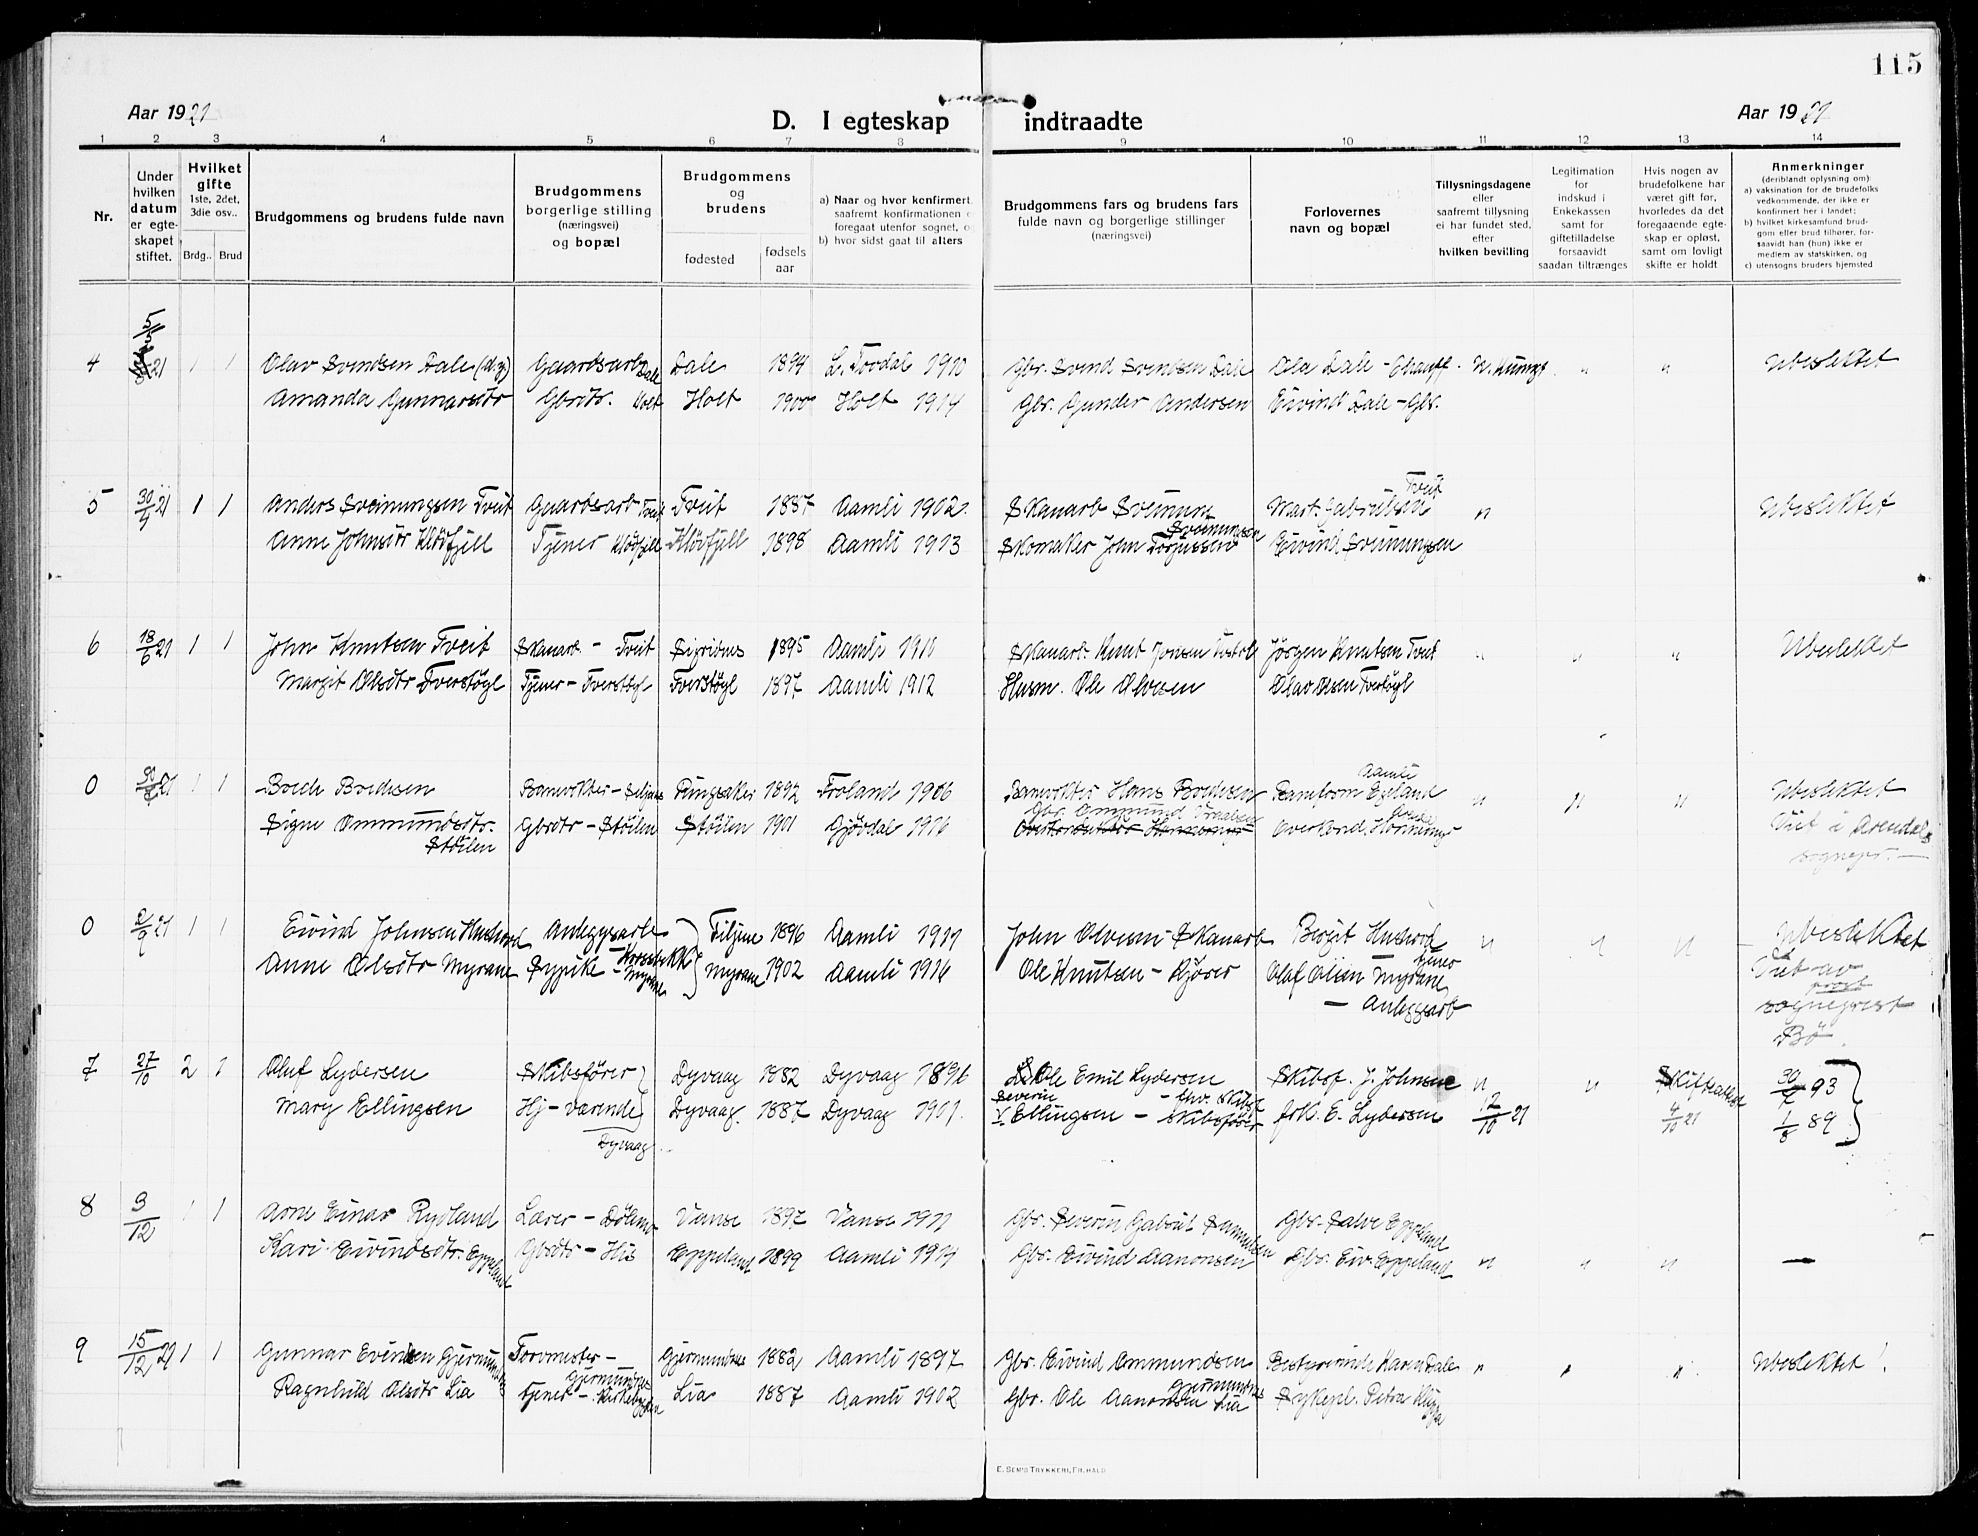 115
Aar 1921
D. I egteskap indtraadte
Aar 1921
1 2 3 4 5 6 7 8 9 10 11 12 13 14
Nr.
Under hvilken datum er egteskapet stiftet.
Hvilket gifte 1ste, 2det, 3die osv..
Brdg.. Brud
Brudgommens og brudens fulde navn
Brudgommens borgerlige stilling (næringsvei) og bopæl
Brudgommens og brudens
fødested
fødsels aar
a) Naar og hvor konfirmert,
saafremt konfirmationen
foregaat utenfor sognet, o
b) hvor sidst gaat til alters
Brudgommens fars og brudens fars
fulde navn og borgerlige stillinger
(næringsvei)
Forlovernes
navn og bopæl
Tillysningsdagene
eller
saafremt tillysning
ei har fundet sted,
efter
hvilken bevilling
Legitimation
for
indskud i
Enkekassen
samt for
giftetilladelse
forsaavidt
saadan tiltrænges
Hvis nogen av
brudefolkene har
været gift før,
hvorledes da det
foregaaende egte-
skap er opløst,
samt om lovligt
skifte er holdt
Anmerkninger
(deriblandt oplysning om):
a) vaksination for de brudefolks
vedkommende, der ikke er
konfirmert her i landet;
b) hvilket kirkesamfund brud-
gom eller brud tilhører, for-
saavidt han (hun) ikke er
medlem av statskirken, og
c) utensogns bruders hjemsted
4 5/5 21 1 1 Olav Svendsen Dale (d.y) Gaardsarb Dale Dale 1894 1910 Gbr. Svend Svendsen Dale Ola Dale - Chauff. " " Ubeslektet
Amanda Gunnarsdtr Gbrdtr. Holt Holt 1900 Holt 1914 Gbr. Gunder Andersen Eivind Dale - Gbr.
5 30/4 21 1 1 Anders Sveinungsen Tveit Gaardsarb Tveit Tveit 1887 Aamli 1902. Skanarb Sveinung Sveinungsen Mart. Gabrielsen Tveit " Ubeslektet
Anne Johnsdtr Kløvfjell Tjener Kløvfjell Kløvfjell 1898 Aamli 1913 Skomaker John Torjussen Eivind Sveinungsen
6 18/6 21 1 1 John Knutsen Tveit Skanarb - Tveit Sigridnes 1895 Aamli 1910 Skanarb. Knut Jonsen Jørgen Knutsen Tveit " " " Ubeslektet
Margit Olsdtr Tverstøyl Tjener - Tverstøyl Tverstøyl 1897 Aamli 1912 Husm. Ole Olvesen Olav Olsen Tverstøyl
0 21 1 1 Brede Bredesen Banevokter - 1892 Froland 1906 Banevokter Hans Bredesen Baneform Espeland Aamli " " " Ubeslektet
Signe Ommundsdtr. Støilen Gbrdtr - Støilen Støilen 1901 Gjøvdal 1916 Gbr. Ommund Overkond. Viet i Arendals
sognepr. —
0 2/9 21 1 1 Eivind Johnsen Anleggsarb 1896 Aamli 1911 John Olvesen - Skanarb Birgit tjener " " " Ubeslektet
Anne Olsdtr Myrane Sypike - Myrane Myrane 1902 Aamli 1916 Ole Knutsen - Kjører Olaf Olsen Myrane Viet av
— Anleggsarb prost
sogneprest
Bø.
7 27/10 2 1 Oluf Lydersen Skibsfører Dyvaag 1882 Dyvaag 1896 Ole Emil Lydersen Skibsf. J. Johnsen " " Skifteattest 93
Mary Ellingsen Hj-værende Dyvaag. 1887 Dyvaag 1901. Severin Ellingsen - Skibsfører frk. E. Lydersen 12/10 21 4/10 21 89
Dyvaag
8 3/12 1 1 Arne Einar Rydland Lærer - Vanse 1897 Vanse 1911 Gbr. Severin Gabriel Gbr. Salve Eppeland
Kari Eivindsdtr. Eppeland Gbrdtr - His Eppeland 1899 Aamli 1914 Gbr. Eivind Aanonsen Gbr. Eiv. Eppeland " " " —
9 15/12 21 1 1 Gunnar Eivindsen Gjermundnes Torvmester - Gjermundnes Gjermundnes 1882 Aamli 1897 Gbr. Eivind Ommundsen Gjermundnes Bestyrerinde Karen Dale " " " Ubeslektet!
Ragnhild Olsdtr Lia tjener - Kirkebygden Lia 1887 Aamli 1902 Gbr. Ole Aanonsen Lia Sykepl. Petra
E. Sem's Trykkeri, Fr.hald